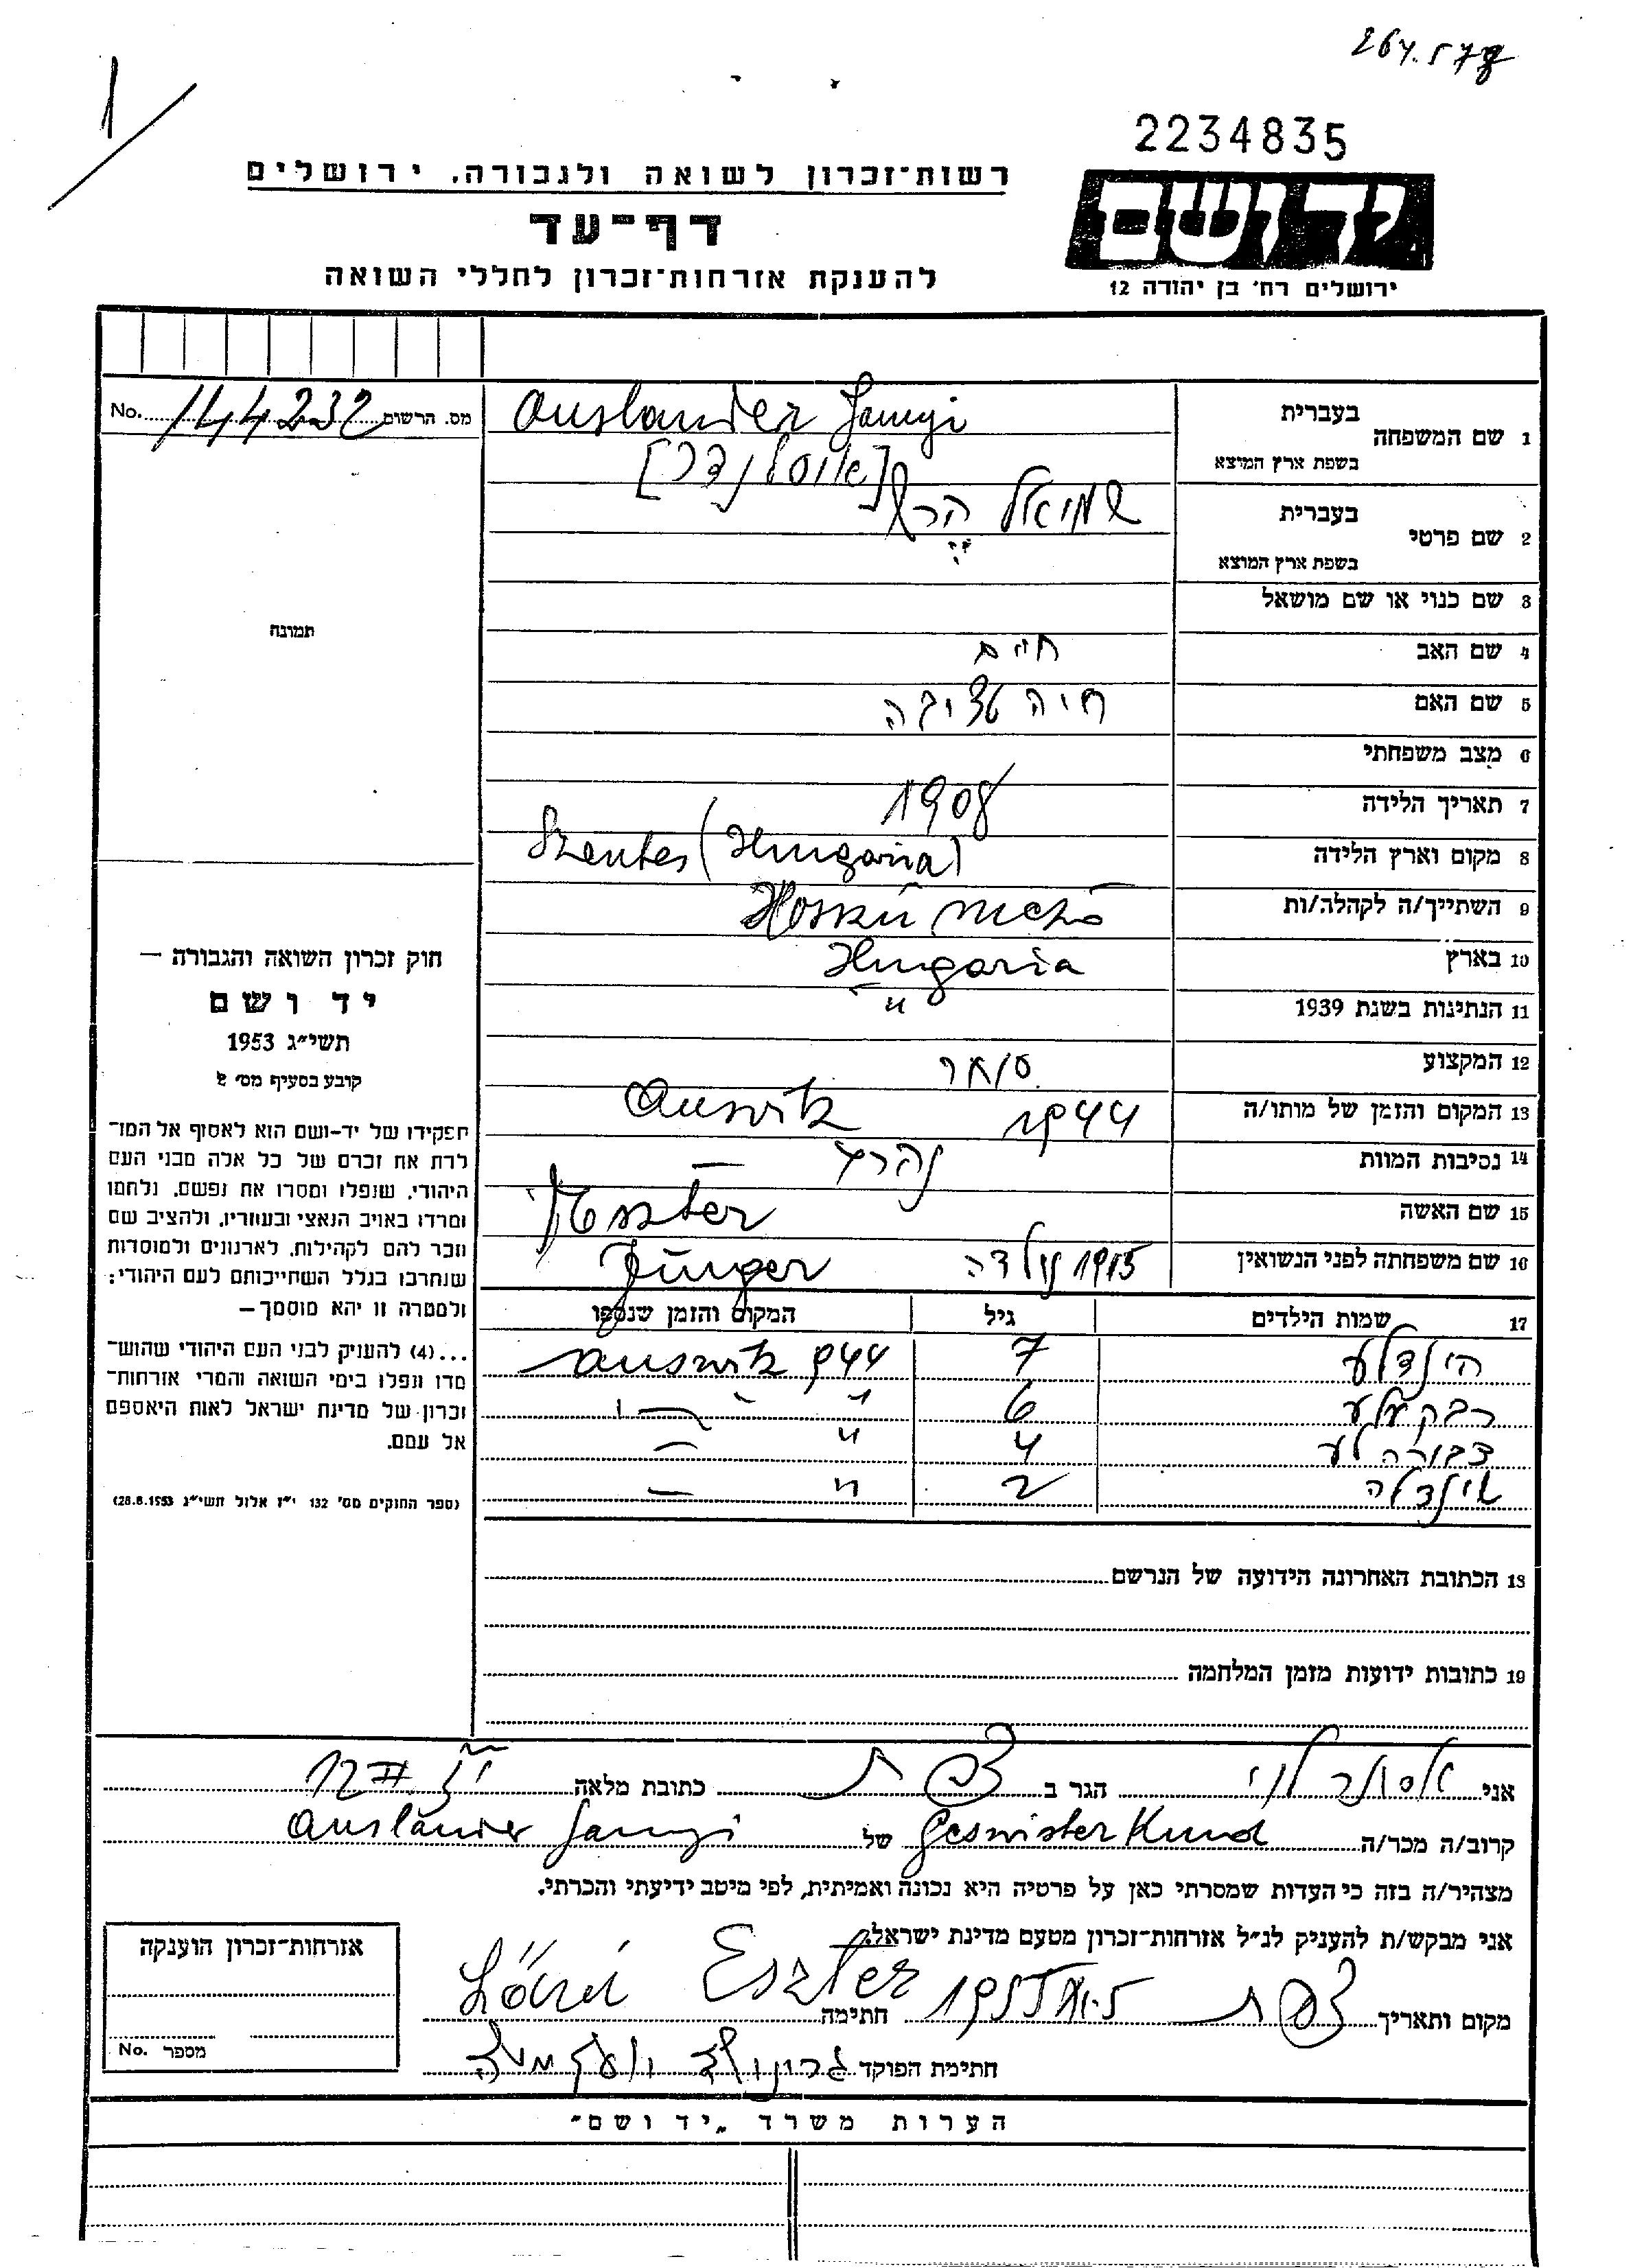 264.578
1
2234835
רשות־זכרון לשואה ולגבורה, ירושלים
דף־עד
להענקת אזרחות־זכרון לחללי השואה
יד ושם
ירושלים רח׳ בן יהודה 12
מס. הרשום 144232 No.
1 שם המשפחה בעברית
בשפת ארץ המוצא
Auslander Samyi
[אוסלנדר]
2 שם פרטי בעברית
בשפת ארץ המוצא
שמואל הרש
3 שם כנוי או שם מושאל
תמונה
4 שם האב חיים
5 שם האם חיה
6 מצב משפחתי
7 תאריך הלידה 1908
8 מקום וארץ הלידה Szentes (Hungaria)
9 השתייך/ה לקהלה/ות
10 בארץ Hungaria
11 הנתינות בשנת 1939 — " —
12 המקצוע סוחר
13 המקום והזמן של מותו/ה 1944 Auswitz
14 נסיבות המוות נהרג —
15 שם האשה Eszter
16 שם משפחתה לפני הנשואין נולדה 1915 Jünger
17 שמות הילדים גיל המקום והזמן שנספו
הינדלע 7 944 Auswitz
רבקעלע 6 " "
דבורהלע 4 " —
איידלה 2 " —
18 הכתובת האחרונה הידועה של הנרשם
19 כתובות ידועות מזמן המלחמה
חוק זכרון השואה והגבורה —
יד ושם
תשי״ג 1953
קובע בסעיף מס׳ 2
תפקידו של יד-ושם הוא לאסוף אל המו־
לדת את זכרם של כל אלה מבני העם
היהודי, שנפלו ומסרו את נפשם, נלחמו
ומרדו באויב הנאצי ובעוזריו, ולהציב שם
וזכר להם לקהילות, לארגונים ולמוסדות
שנחרבו בגלל השתייכותם לעם היהודי;
ולמטרה זו יהא מוסמך—
...(4) להעניק לבני העם היהודי שהוש־
מדו ונפלו בימי השואה והמרי אזרחות־
זכרון של מדינת ישראל לאות היאספם
אל עמם.
(ספר החוקים מס׳ 132 י״ז אלול תשי״ג 28.8.1953)
אני אסתר לוי הגר ב צפת כתובת מלאה
קרוב/ה מכר/ה Geswister Kind של Ausländer Samyi
מצהיר/ה בזה כי העדות שמסרתי כאן על פרטיה היא נכונה ואמיתית, לפי מיטב ידיעתי והכרתי.
אני מבקש/ת להעניק לנ״ל אזרחות־זכרון מטעם מדינת ישראל.
מקום ותאריך צפת חתימה Lővi Eszter
חתימת הפוקד
אזרחות־זכרון הוענקה
מספר No.
הערות משרד „יד ושם״